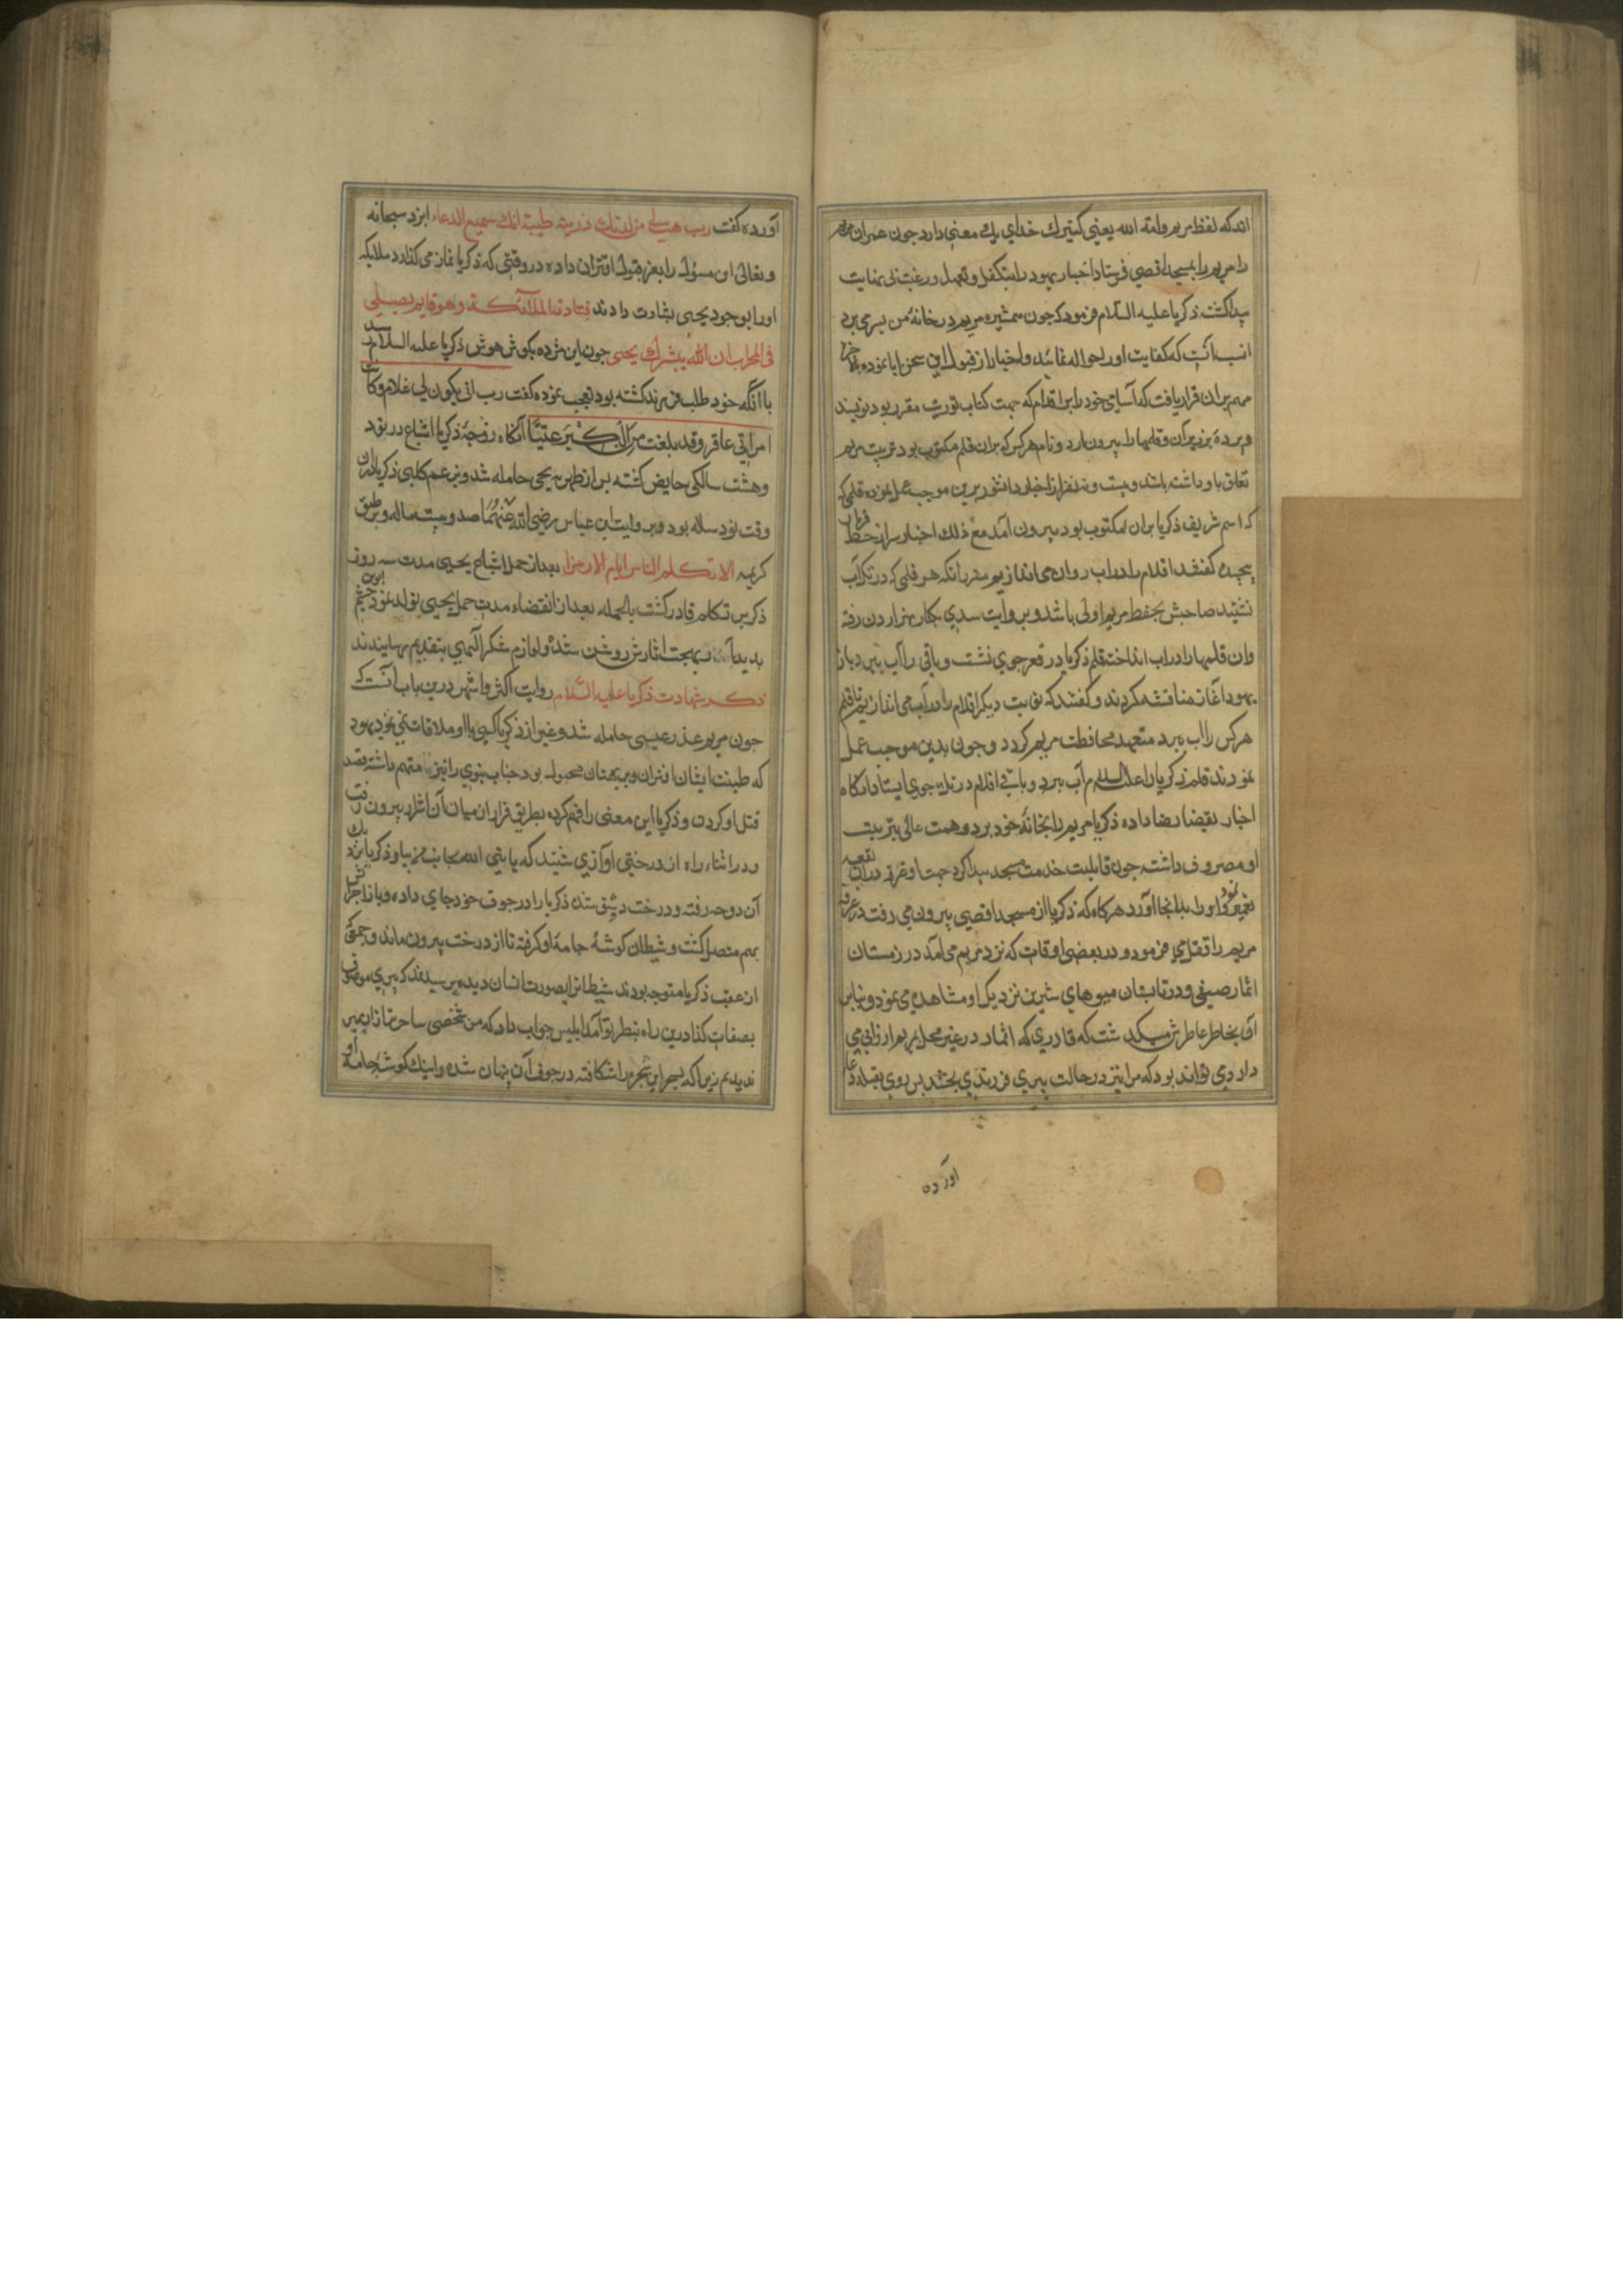 اند که لفظ مریم وامة الله یعنی کنیزك خدای یك معنی دارد جون عمران مریم
را بمسجد اقصی فرستاد احبار یهود را بتکفل وتعهد او رغبت بی نهایت
پیدا کشت ذکریا علیه السلام فرمود که جون همشیره مریم در خانهٔ من بسر می برد
انسب آنست که کفایت او را حواله نمائید واحبار از قبول این سخن ابا نموده
مهم بران قرار یافت که آسامی خود را بر اقلام که جهت کتاب توریت مقرر بود نویسند
وپرده بر زبر آن وقلمها را بیرون ارد ونام هرکس که بران قلم مکتوب بود تربیت مریم
تعلق باو داشته باشد وبیست ونه نفر از احبار دانشور برین موجب عمل نموده قلمی که
که اسم شریف ذکریا بران مکتوب بود بیرون آمد مع ذلك احبار سر از خط فرمان
پیجیده کفتند اقلام را در اب روان می اندازیم مقرر انکه هر قلمی که در تك آب
نشیند صاحبش بحفظ مریم اولی باشد وبروایت سدی بکنار نهر اردن رفته
وان قلمها را در اب انداخته قلم ذکریا در قعر جوی نشست وباقی را آب ببرد باز
یهود آغاز مناقشه کردند وکفتند که نوبت دیکر اقلام را در آب می اندازیم تا قلم
هرکس را اب ببرد متعهد محافظت مریم کردد وجون بدین موجب عمل
نمودند قلم ذکریا را علیه السلم آب ببرد وباقی اقلام در ته جوی ایستاد انکاه
احبار بقضا رضا داده ذکریا مریم را بخانهٔ خود برد وهمت عالی بتربیت
او مصروف داشته جون قابلیت خدمت مسجد پیدا کرد جهت او غرفه دران بقعه
تعمیر نمود او را بدانجا آورد هرکاه که ذکریا از مسجد اقصی بیرون می رفت در غرفه
مریم را قفل می فرمود ودر بعضی اوقات که نزد مریم می آمد در زمستان
اثمار صیفی ودر تابستان میوهای شیرین نزدیك او مشاهده می نمود وبنابر
آن بخاطر عاطرش میکذشت که قادری که اثمار در غیر محل بمریم ارزانی می
دارد می تواند بود که مرا نیز در حالت پیری فرزندی بخشد پس روی بقبله دعا
آورده
آورده کفت رب هب لی من لدنك ذریة طیبة انك سمیع الدعاء ایزد سبحانه
وتعالی ان مسؤل را بعز قبول اقتران داده در وقتی که ذکریا نماز می کذارد ملایکه
او را بوجود یحیی بشارت دادند فنادته الملآئکة وهو قایم یصلی
فی المحراب ان الله یبشرك بیحیی جون این مژده بکوش هوش ذکریا علیه السلام رسید
با آنکه خود طلب فرزند کشته بود تعجب نموده کفت رب انی یکون لی غلام وکانت
امراتی عاقر وقد بلغت من الکبر عتیا آنکاه زوجهٔ ذکریا اشیاع در نود
وهشت سالکی حایض کشته پس از طهر به یحیی حامله شد وبزعم کلبی ذکریا دران
وقت نود ساله بود وبروایت ابن عباس رضی الله عنهما صد وبیست ساله وبر طبق
کریمه الا تکلم الناس ثلثة ایام الا رمزا بعد از حمل اشیاع بیحیی مدت سه روز
ذکریا بر تکلم قادر نکشت بالجمله بعد از انقضاء مدت حمل یحیی تولد نمود چشم ابوین
بدیدار بهجت اثارش روشن شد ولوازم شکر الهی بتقدیم رسانیدند
ذکر شهادت ذکریا علیه السلام روایت اکثر واشهر درین باب آنست که
جون مریم عذرا بعیسی حامله شد وغیر از ذکریا کسی با او ملاقات نمی نمود یهود
که طینت ایشان بر افترا وبهتان مجبول بود جناب نبوی را نیز متهم داشته قصد
قتل او کردند وذکریا این معنی را فهم کرده بطریق فرار از میان آن اشرار بیرون رفت
ودر اثناء راه از درختی آوازی شنید که یا نبی الله بجانب من بیا وذکریا نزدیك
آن دوحه رفته ودرخت دو شق شده ذکریا را در جوف خود جای داده وباز اجزایش
بهم متصل کشت وشیطان کوشهٔ جامهٔ او کرفته تا از درخت بیرون ماند وجمعی
از عقب ذکریا متوجه بودند شیطان را بصورت انسان دیده پرسیدند که پیری موصوف
بصفات کذا درین راه بنظر تو آمد ابلیس جواب داد که من شخصی ساحرتر از ان پیر
ندیدم زیرا که بسحر این شجره را شکافته در جوف آن پنهان شده واینك کوشهٔ جامه او